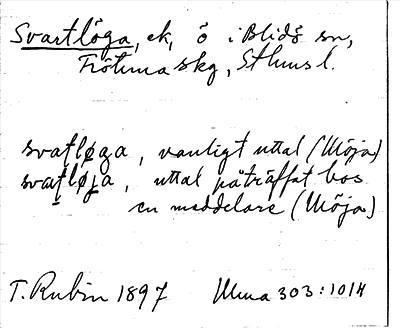 Svartlöga, ek, ö i Blidö sn,
Frötuna skg, Sthms l.
svaƭløga, vanligt uttal (Möja)
svaƭløja, uttal påträffat hos
en meddelare (Möja)
T. Rubin 1897 Ulma 303:10